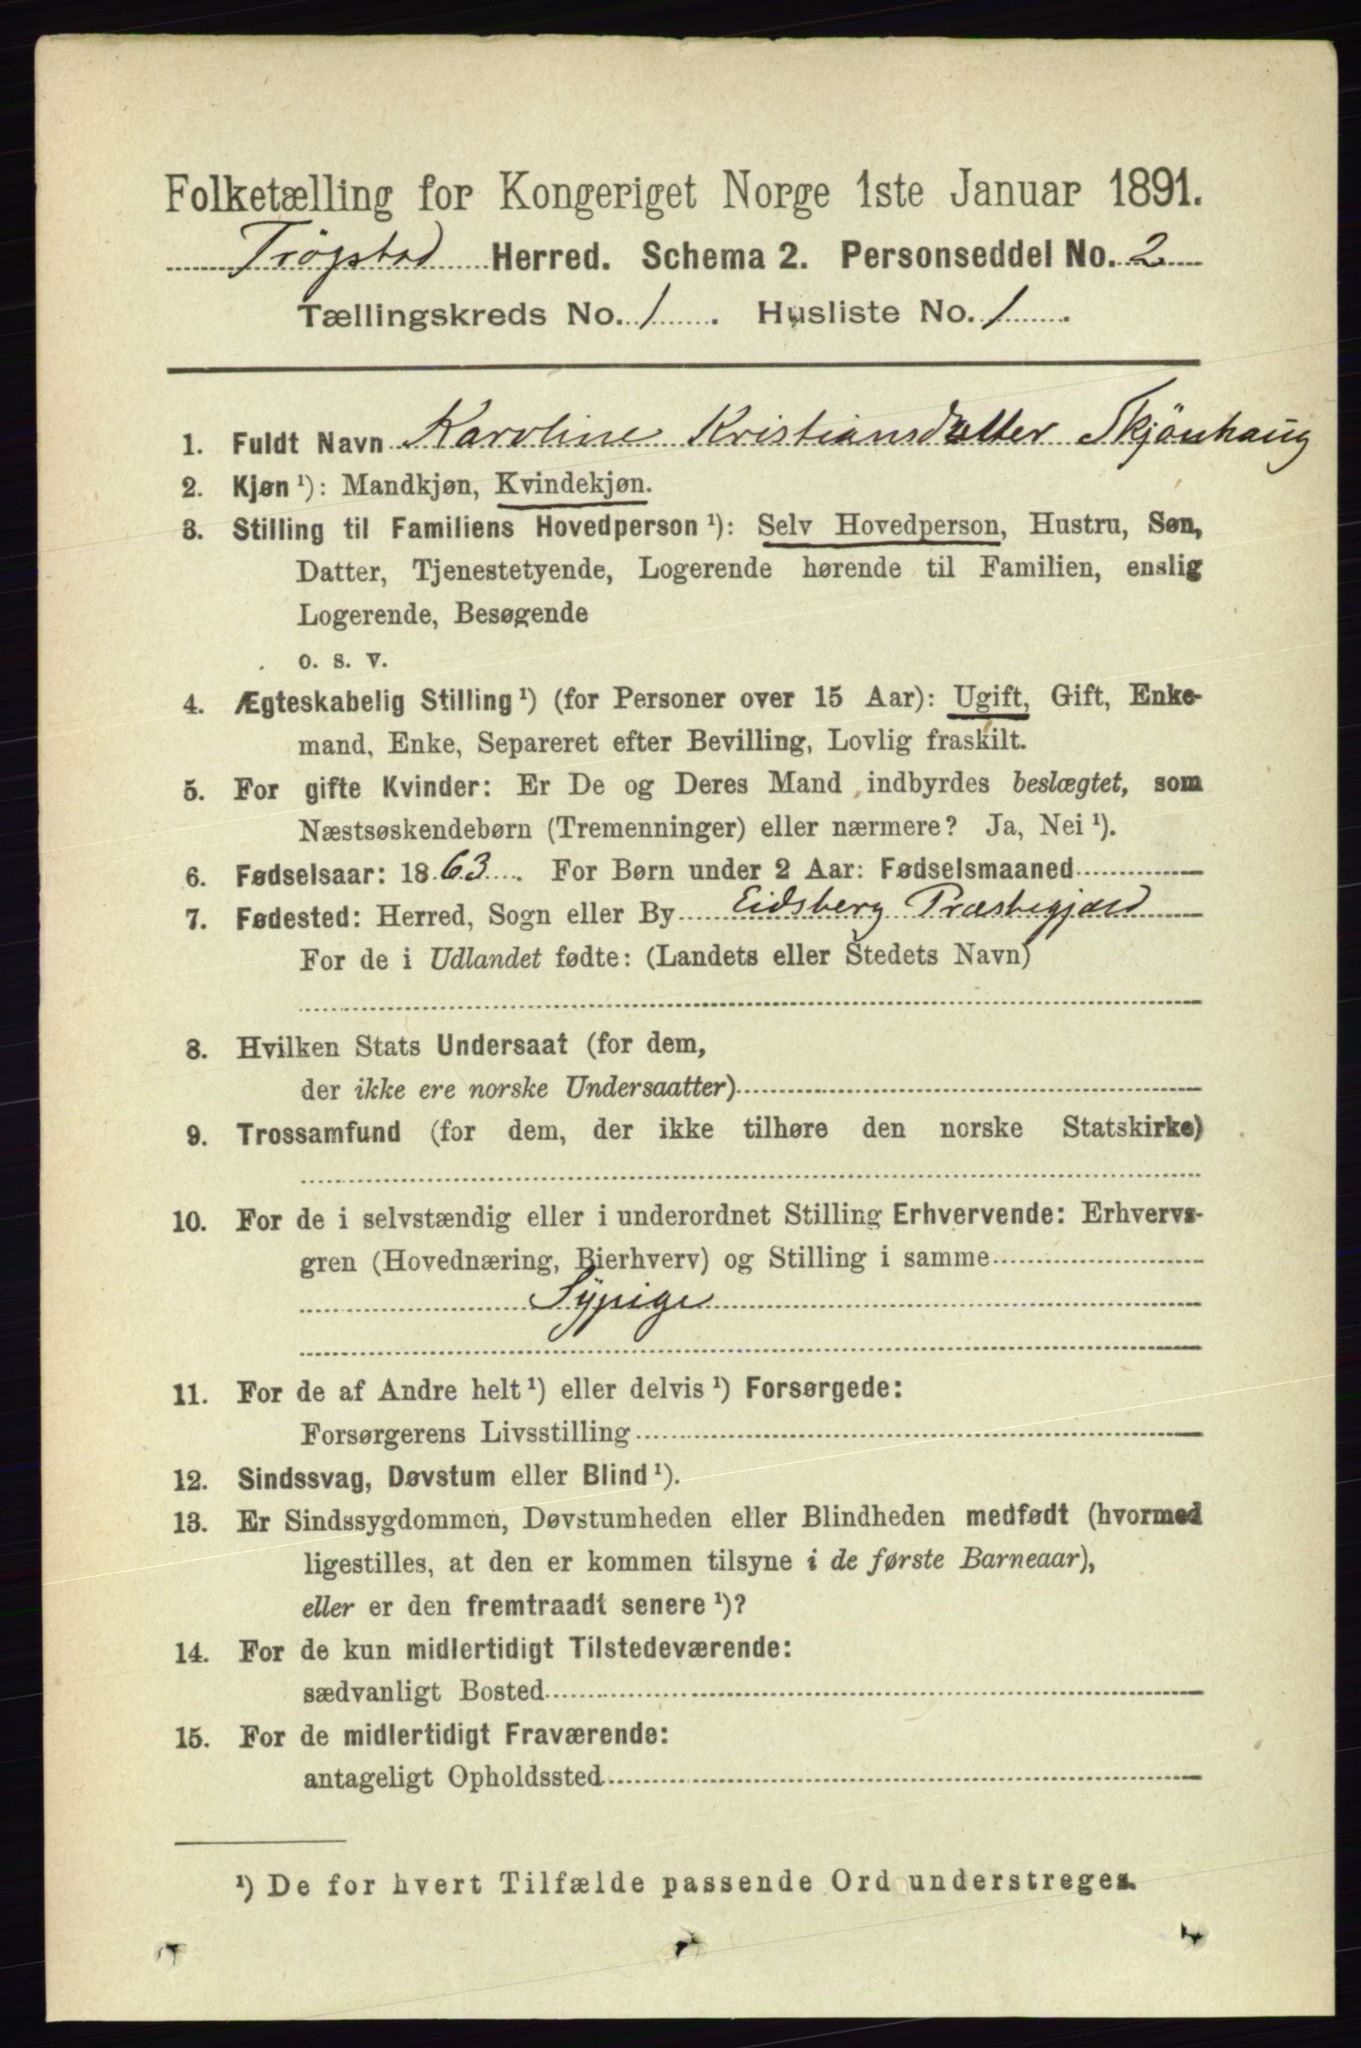 Folketælling for Kongeriget Norge 1ste Januar 1891.
Trøgstad Herred. Schema 2. Personseddel No. 2
Tællingskreds No. 1. Husliste No. 1.
1. Fuldt Navn Karoline Kristiansdatter Skjönhaug
2. Kjøn ¹): Mandkjøn, Kvindekjøn.
3. Stilling til Familiens Hovedperson ¹): Selv Hovedperson, Hustru, Søn,
Datter, Tjenestetyende, Logerende hørende til Familien, enslig
Logerende, Besøgende
o. s. v.
4. Ægteskabelig Stilling ¹) (for Personer over 15 Aar): Ugift, Gift, Enke-
mand, Enke, Separeret efter Bevilling, Lovlig fraskilt.
5. For gifte Kvinder: Er De og Deres Mand indbyrdes beslægtet, som
Næstsøskendebørn (Tremenninger) eller nærmere? Ja, Nei ¹).
6. Fødselsaar: 1863. For Børn under 2 Aar: Fødselsmaaned
7. Fødested: Herred, Sogn eller By Eidsberg Præstegjæld
For de i Udlandet fødte: (Landets eller Stedets Navn)
8. Hvilken Stats Undersaat (for dem,
der ikke ere norske Undersaatter)
9. Trossamfund (for dem, der ikke tilhøre den norske Statskirke)
10. For de i selvstændig eller i underordnet Stilling Erhvervende: Erhvervs-
gren (Hovednæring, Bierhverv) og Stilling i samme
Sÿpige
11. For de af Andre helt ¹) eller delvis ¹) Forsørgede:
Forsørgerens Livsstilling
12. Sindssvag, Døvstum eller Blind ¹).
13. Er Sindssygdommen, Døvstumheden eller Blindheden medfødt (hvormed
ligestilles, at den er kommen tilsyne i de første Barneaar),
eller er den fremtraadt senere ¹)?
14. For de kun midlertidigt Tilstedeværende:
sædvanligt Bosted
15. For de midlertidigt Fraværende:
antageligt Opholdssted
¹) De for hvert Tilfælde passende Ord understreges.